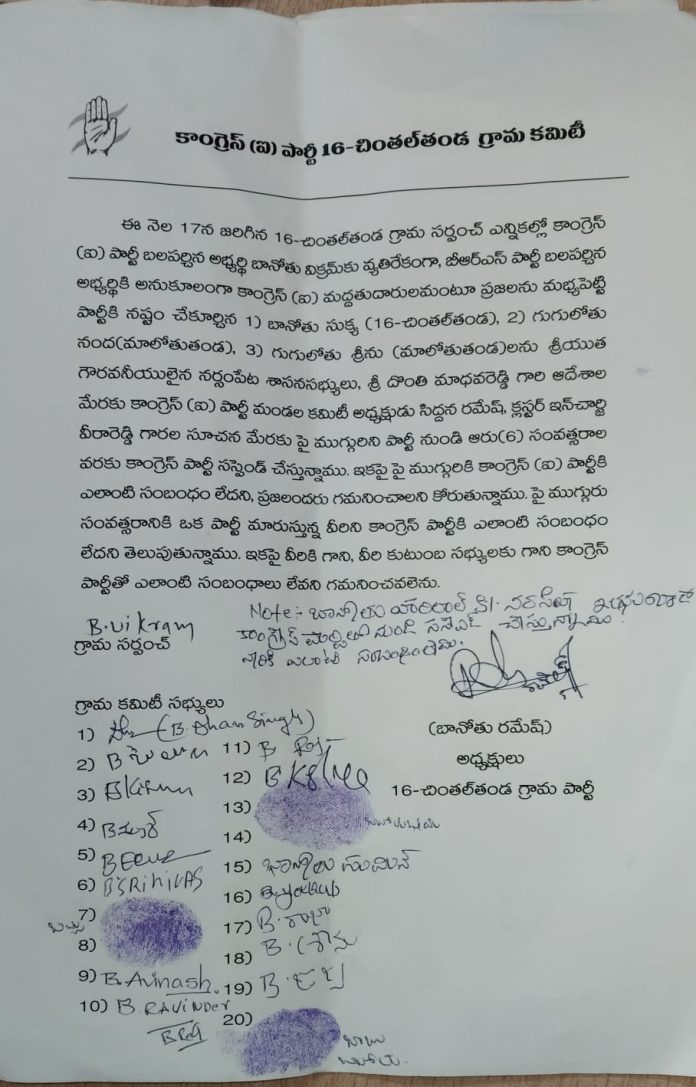 కాంగ్రెస్ (ఐ) పార్టీ 16-చింతల్‌తండ గ్రామ కమిటీ
ఈ నెల 17న జరిగిన 16-చింతల్‌తండ గ్రామ సర్పంచ్ ఎన్నికల్లో కాంగ్రెస్
(ఐ) పార్టీ బలపర్చిన అభ్యర్థి బానోతు విక్రమ్‌కు వ్యతిరేకంగా, బీఆర్ఎస్ పార్టీ బలపర్చిన
అభ్యర్థికి అనుకూలంగా కాంగ్రెస్ (ఐ) మద్దతుదారులమంటూ ప్రజలను మభ్యపెట్టి
పార్టీకి నష్టం చేకూర్చిన 1) బానోతు సుక్య (16-చింతల్‌తండ), 2) గుగులోతు
నంద(మాలోతుతండ), 3) గుగులోతు శ్రీను (మాలోతుతండ)లను శ్రీయుత
గౌరవనీయులైన నర్సంపేట శాసనసభ్యులు, శ్రీ దొంతి మాధవరెడ్డి గారి ఆదేశాల
మేరకు కాంగ్రెస్ (ఐ) పార్టీ మండల కమిటీ అధ్యక్షుడు సిద్దన రమేష్, క్లస్టర్ ఇన్‌చార్జి
వీరారెడ్డి గారల సూచన మేరకు పై ముగ్గురిని పార్టీ నుండి ఆరు(6) సంవత్సరాల
వరకు కాంగ్రెస్ పార్టీ సస్పెండ్ చేస్తున్నాము. ఇకపై పై ముగ్గురికి కాంగ్రెస్ (ఐ) పార్టీకి
ఎలాంటి సంబంధం లేదని, ప్రజలందరు గమనించాలని కోరుతున్నాము. పై ముగ్గురు
సంవత్సరానికి ఒక పార్టీ మారుస్తున్న వీరిని కాంగ్రెస్ పార్టీకి ఎలాంటి సంబంధం
లేదని తెలుపుతున్నాము. ఇకపై వీరికి గాని, వీరి కుటుంబ సభ్యులకు గాని కాంగ్రెస్
పార్టీతో ఎలాంటి సంబంధాలు లేవని గమనించవలెను.
Note:- బానోతు
కాంగ్రెస్ నుండి చేస్తున్నాము.
B.Vikram
గ్రామ సర్పంచ్
గ్రామ కమిటీ సభ్యులు
1) (B. Dhan Singh)
2) B
3) B Kiran
4) B
5) B
6) B SRiNiVAS
7)
8)
9) B. Avinash.
10) B RAViNDer
11) B
12) B
13)
14)
15) బానోతు
16)
17) B. రాజు
18) B. శ్రీను
19) B.
20)
(బానోతు రమేష్)
అధ్యక్షులు
16-చింతల్‌తండ గ్రామ పార్టీ